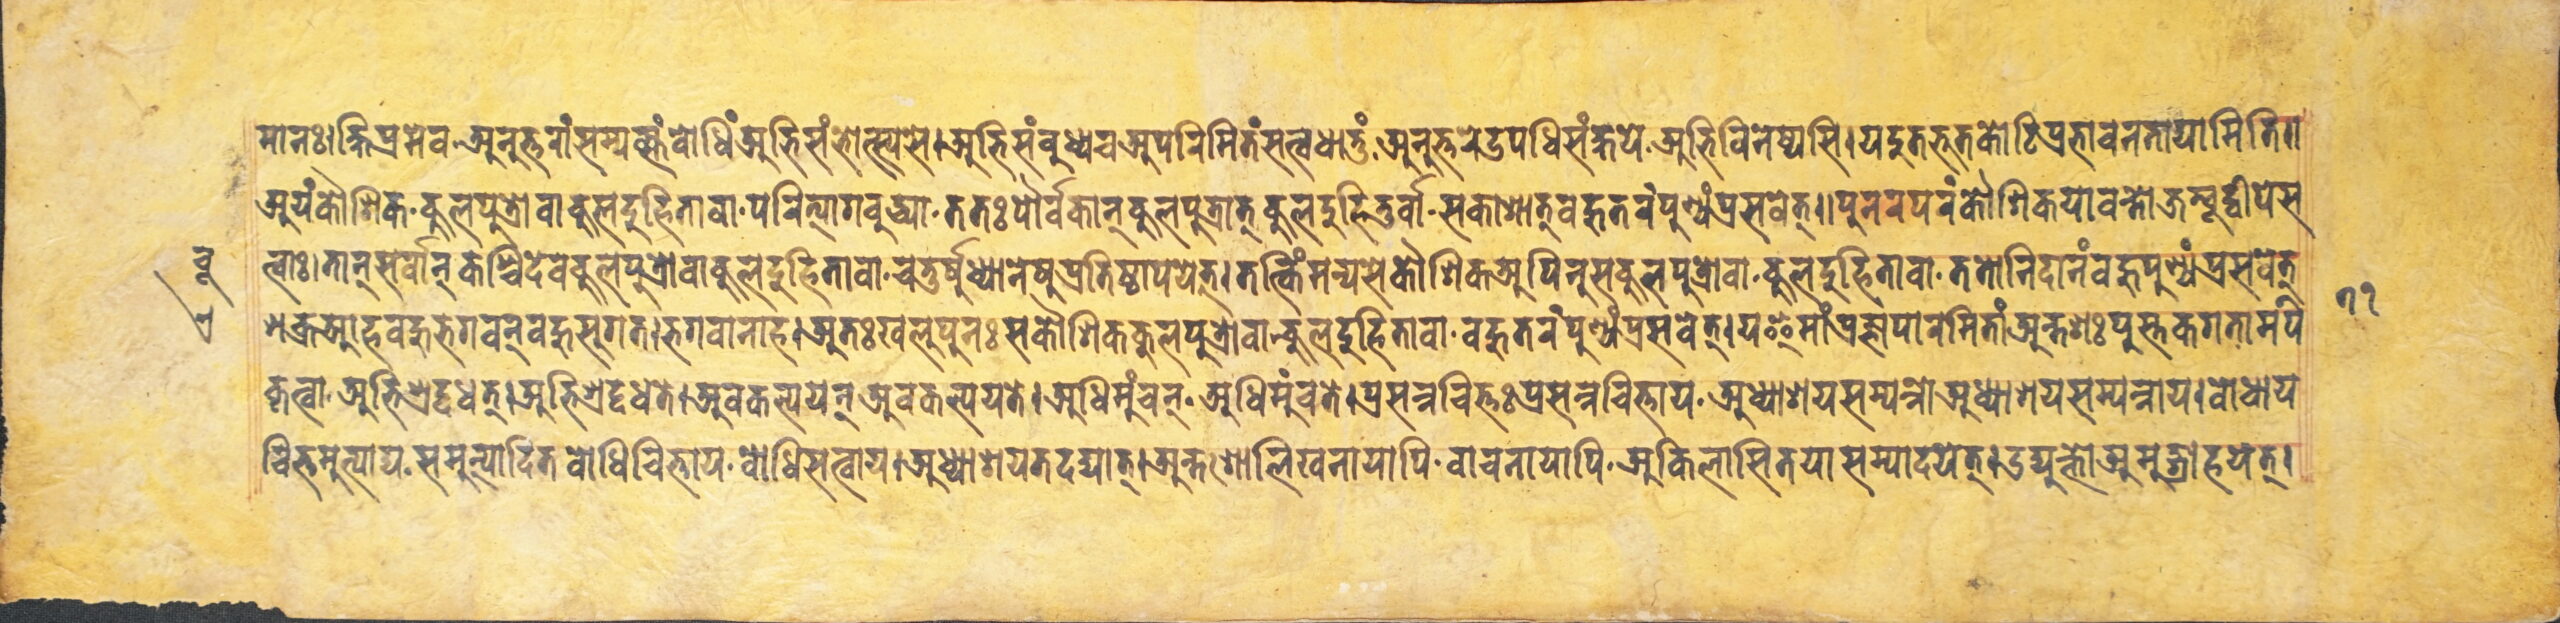 मानः। क्षिप्रमेव·अनुत्तरां सम्यक्संबोधिं अभिसंभोत्स्यसे। अभिसंबुध्य च अपरिमितं सत्वधातुं·अनुत्तरे उपधिसंक्षये·अभिविनेष्यसि। यदुत भूतकोटिप्रभावनतायामिति॥
अयं कौशिक·कुलपुत्रो वा कुलदुहिता वा·परित्यागबुद्ध्या·ततः पौर्वकान् कुलपुत्रात् कुलदुहितुर्वा·सकाशात् बहुतरं पुण्यं प्रसवेत्॥ पुनरपरं कौशिक यावन्तो जम्बूद्वीपे स
त्वाः। तान् सर्वान् कश्चिदेव कुलपुत्रो वा कुलदुहिता वा·चतुर्षु ध्यानेषु प्रतिष्ठापयेत्। तत्किं मन्यसे कौशिक अपि नु स कुलपुत्रो वा·कुलदुहिता वा·ततो निदानं बहु पुण्यं प्रसवेत्
शक्र आह बहु भगवन् बहु सुगत। भगवानाह। अतः खलु पुनः स कौशिक कुलपुत्रो वा·कुलदुहिता वा·बहुतरं पुण्यं प्रसवेत्। य इमां प्रज्ञापारमितां अन्तशः पुस्तकगतामपि
कृत्वा·अभिश्रद्दधत्। अभिश्रद्दधते। अवकल्पयन् अवकल्पयते। अधिमुंचन्·अधिमुंचते। प्रसन्नचित्तः प्रसन्नचित्ताय·अध्याशयसम्पन्नो अध्याशयसम्पन्नाय। बोधाय
चित्तमुत्पाद्य·समुत्पादितबोधिचित्ताय·बोधिसत्वाय। अध्याशयत दद्यात्। अन्तशो लिखनायापि·वाचनायापि·अकिलासितया सम्पादयेत्। उद्युक्तो अमुं ग्राहयेत्।
७१